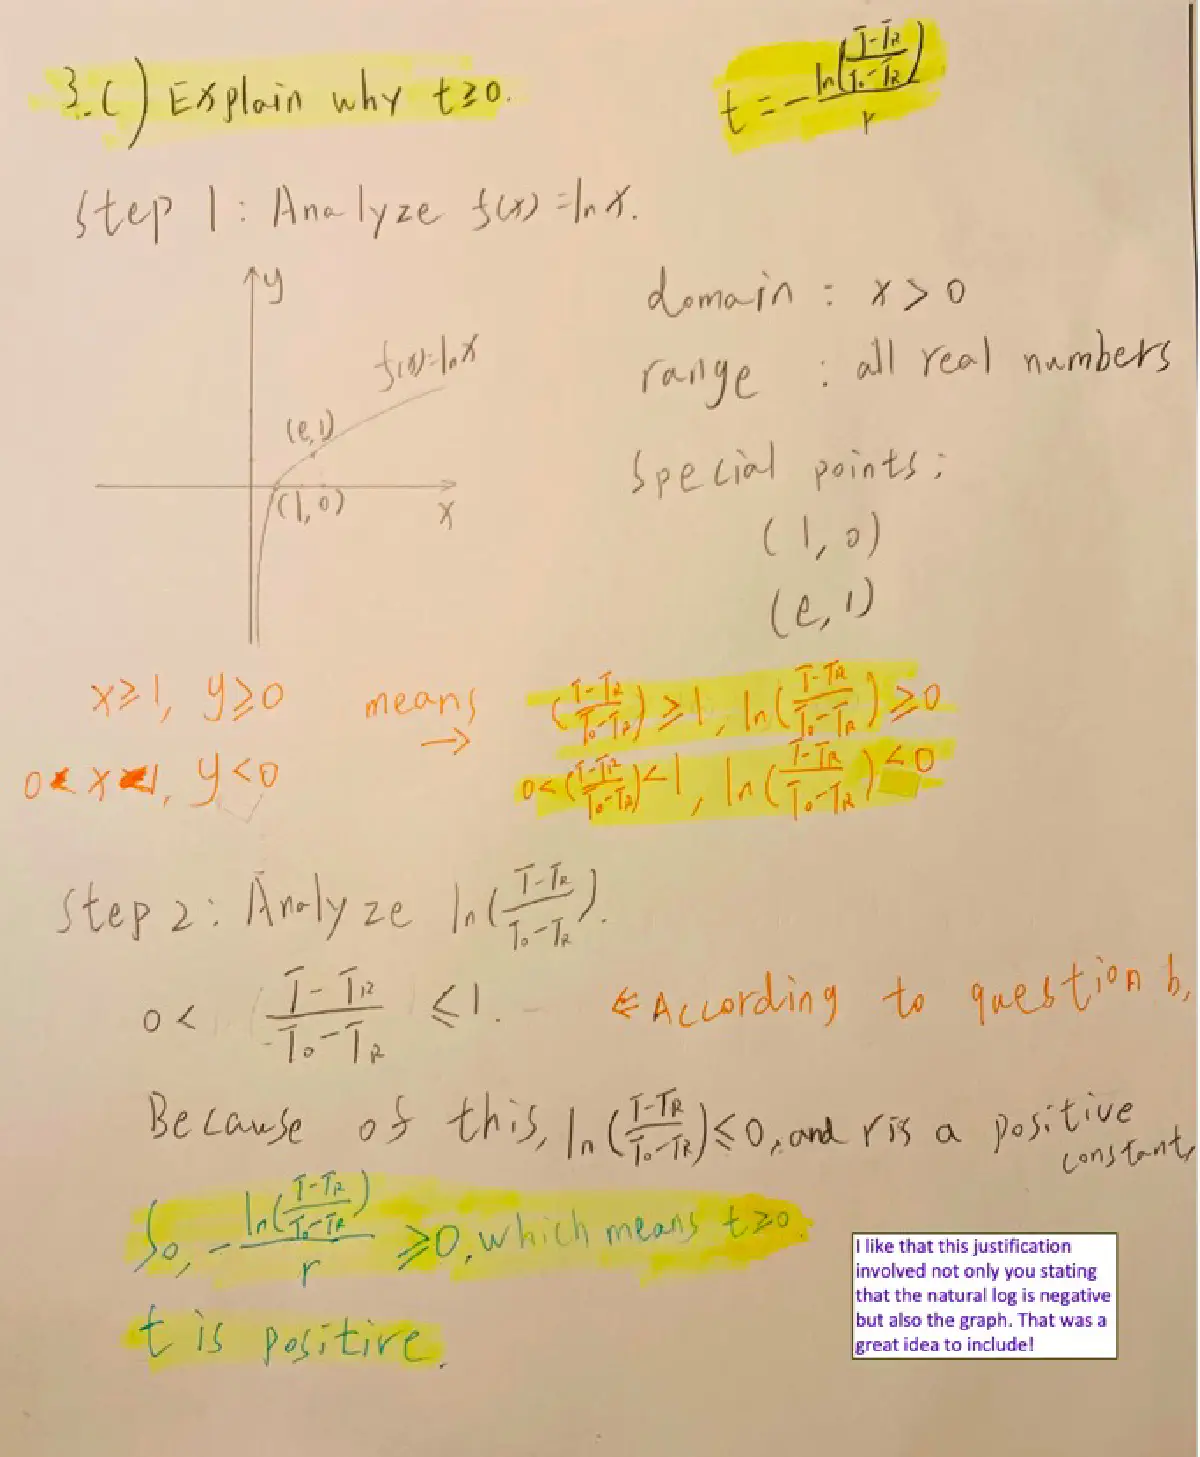 3.c) Explain why t≥0.
t = - ln((T-TR)/(T₀-TR)) / r
Step 1: Analyze f(x)=lnx.
y
f(x)=lnx
(e,1)
(1,0)
x
domain : x>0
range : all real numbers
Special points:
(1,0)
(e,1)
x≥1, y≥0 means → ((T-TR)/(T₀-TR))≥1, ln((T-TR)/(T₀-TR))≥0
0<x<1, y<0 0<((T-TR)/(T₀-TR))<1, ln((T-TR)/(T₀-TR))<0
Step 2: Analyze ln((T-TR)/(T₀-TR)).
0< (T-TR)/(T₀-TR) ≤1. ⇐ According to question b,
Because of this, ln((T-TR)/(T₀-TR))≤0, and r is a positive
constant,
So, - ln((T-TR)/(T₀-TR)) / r ≥0, which means t≥0.
t is positive.
I like that this justification
involved not only you stating
that the natural log is negative
but also the graph. That was a
great idea to include!